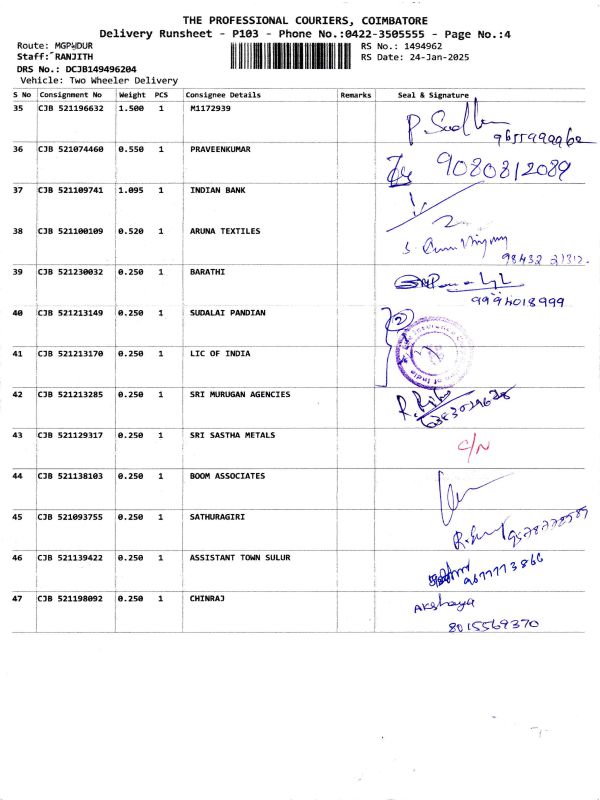 THE PROFESSIONAL COURIERS, COIMBATORE
Delivery Runsheet - P103 - Phone No.:0422-3505555 - Page No.:4
Route: MGPWDUR RS No.: 1494962
Staff: RANJITH RS Date: 24-Jan-2025
DRS No.: DCJB149496204
Vehicle: Two Wheeler Delivery
S No Consignment No Weight PCS Consignee Details Remarks Seal & Signature
35 CJB 521196632 1.500 1 M1172939
36 CJB 521074460 0.550 1 PRAVEENKUMAR 9080812089
37 CJB 521109741 1.095 1 INDIAN BANK
38 CJB 521100109 0.520 1 ARUNA TEXTILES
98432 21312.
39 CJB 521230032 0.250 1 BARATHI
9994018999
40 CJB 521213149 0.250 1 SUDALAI PANDIAN 2
41 CJB 521213170 0.250 1 LIC OF INDIA
42 CJB 521213285 0.250 1 SRI MURUGAN AGENCIES
43 CJB 521129317 0.250 1 SRI SASTHA METALS C/N
44 CJB 521138103 0.250 1 BOOM ASSOCIATES
45 CJB 521093755 0.250 1 SATHURAGIRI
46 CJB 521139422 0.250 1 ASSISTANT TOWN SULUR
47 CJB 521198092 0.250 1 CHINRAJ Akshaya
8015569370